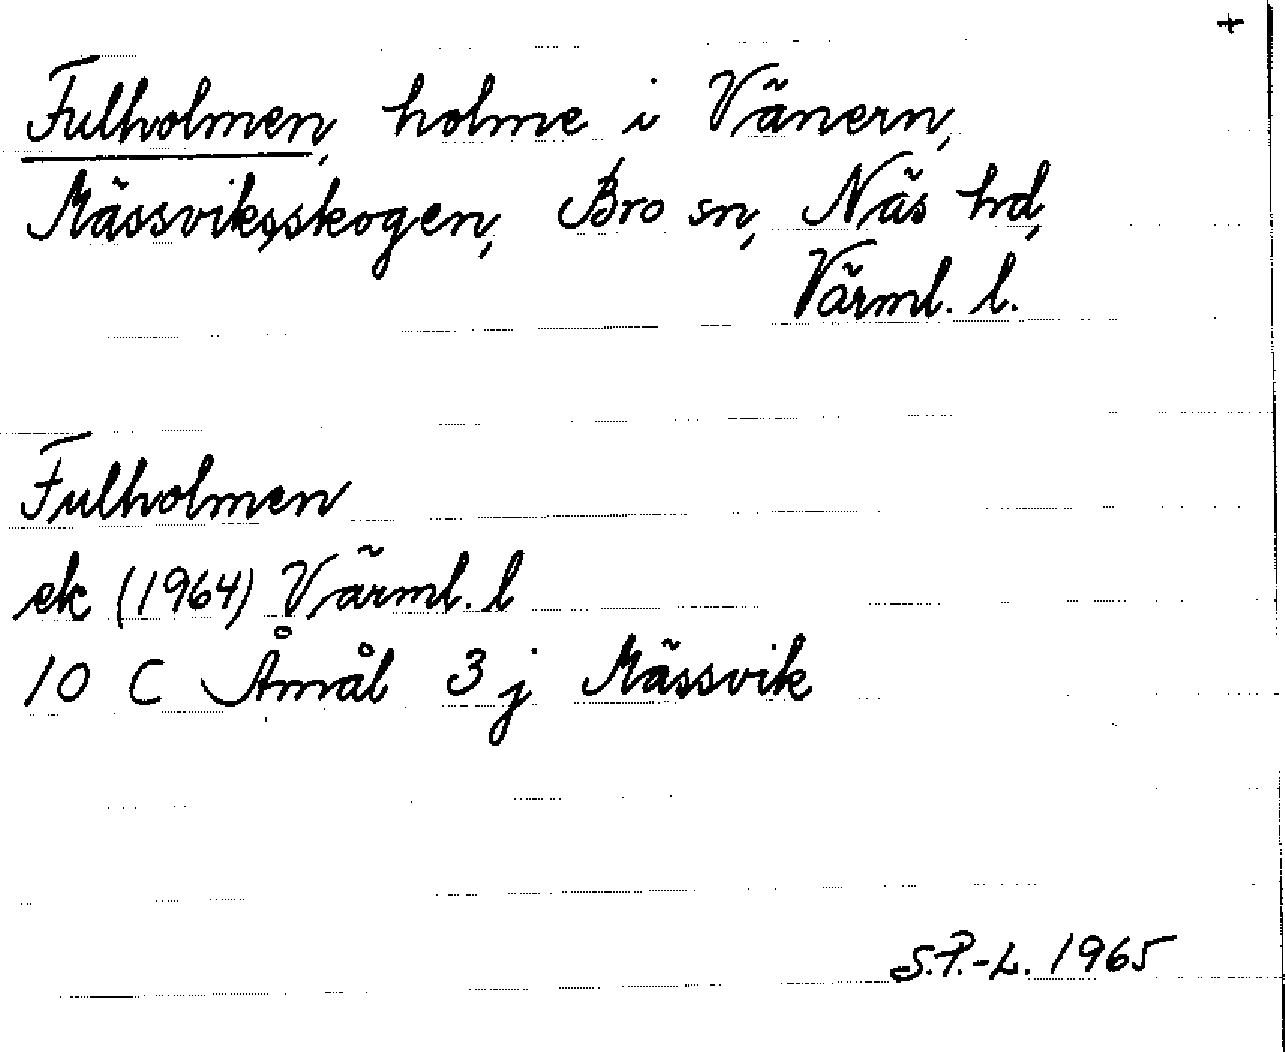 +
Fulholmen, holme i Vänern,
Mässviksskogen, Bro sn, Näs hd,
Värml. l.
Fulholmen
ek (1964) Värml. l
10 C Åmål 3 j Mässvik
S.P.-L. 1965